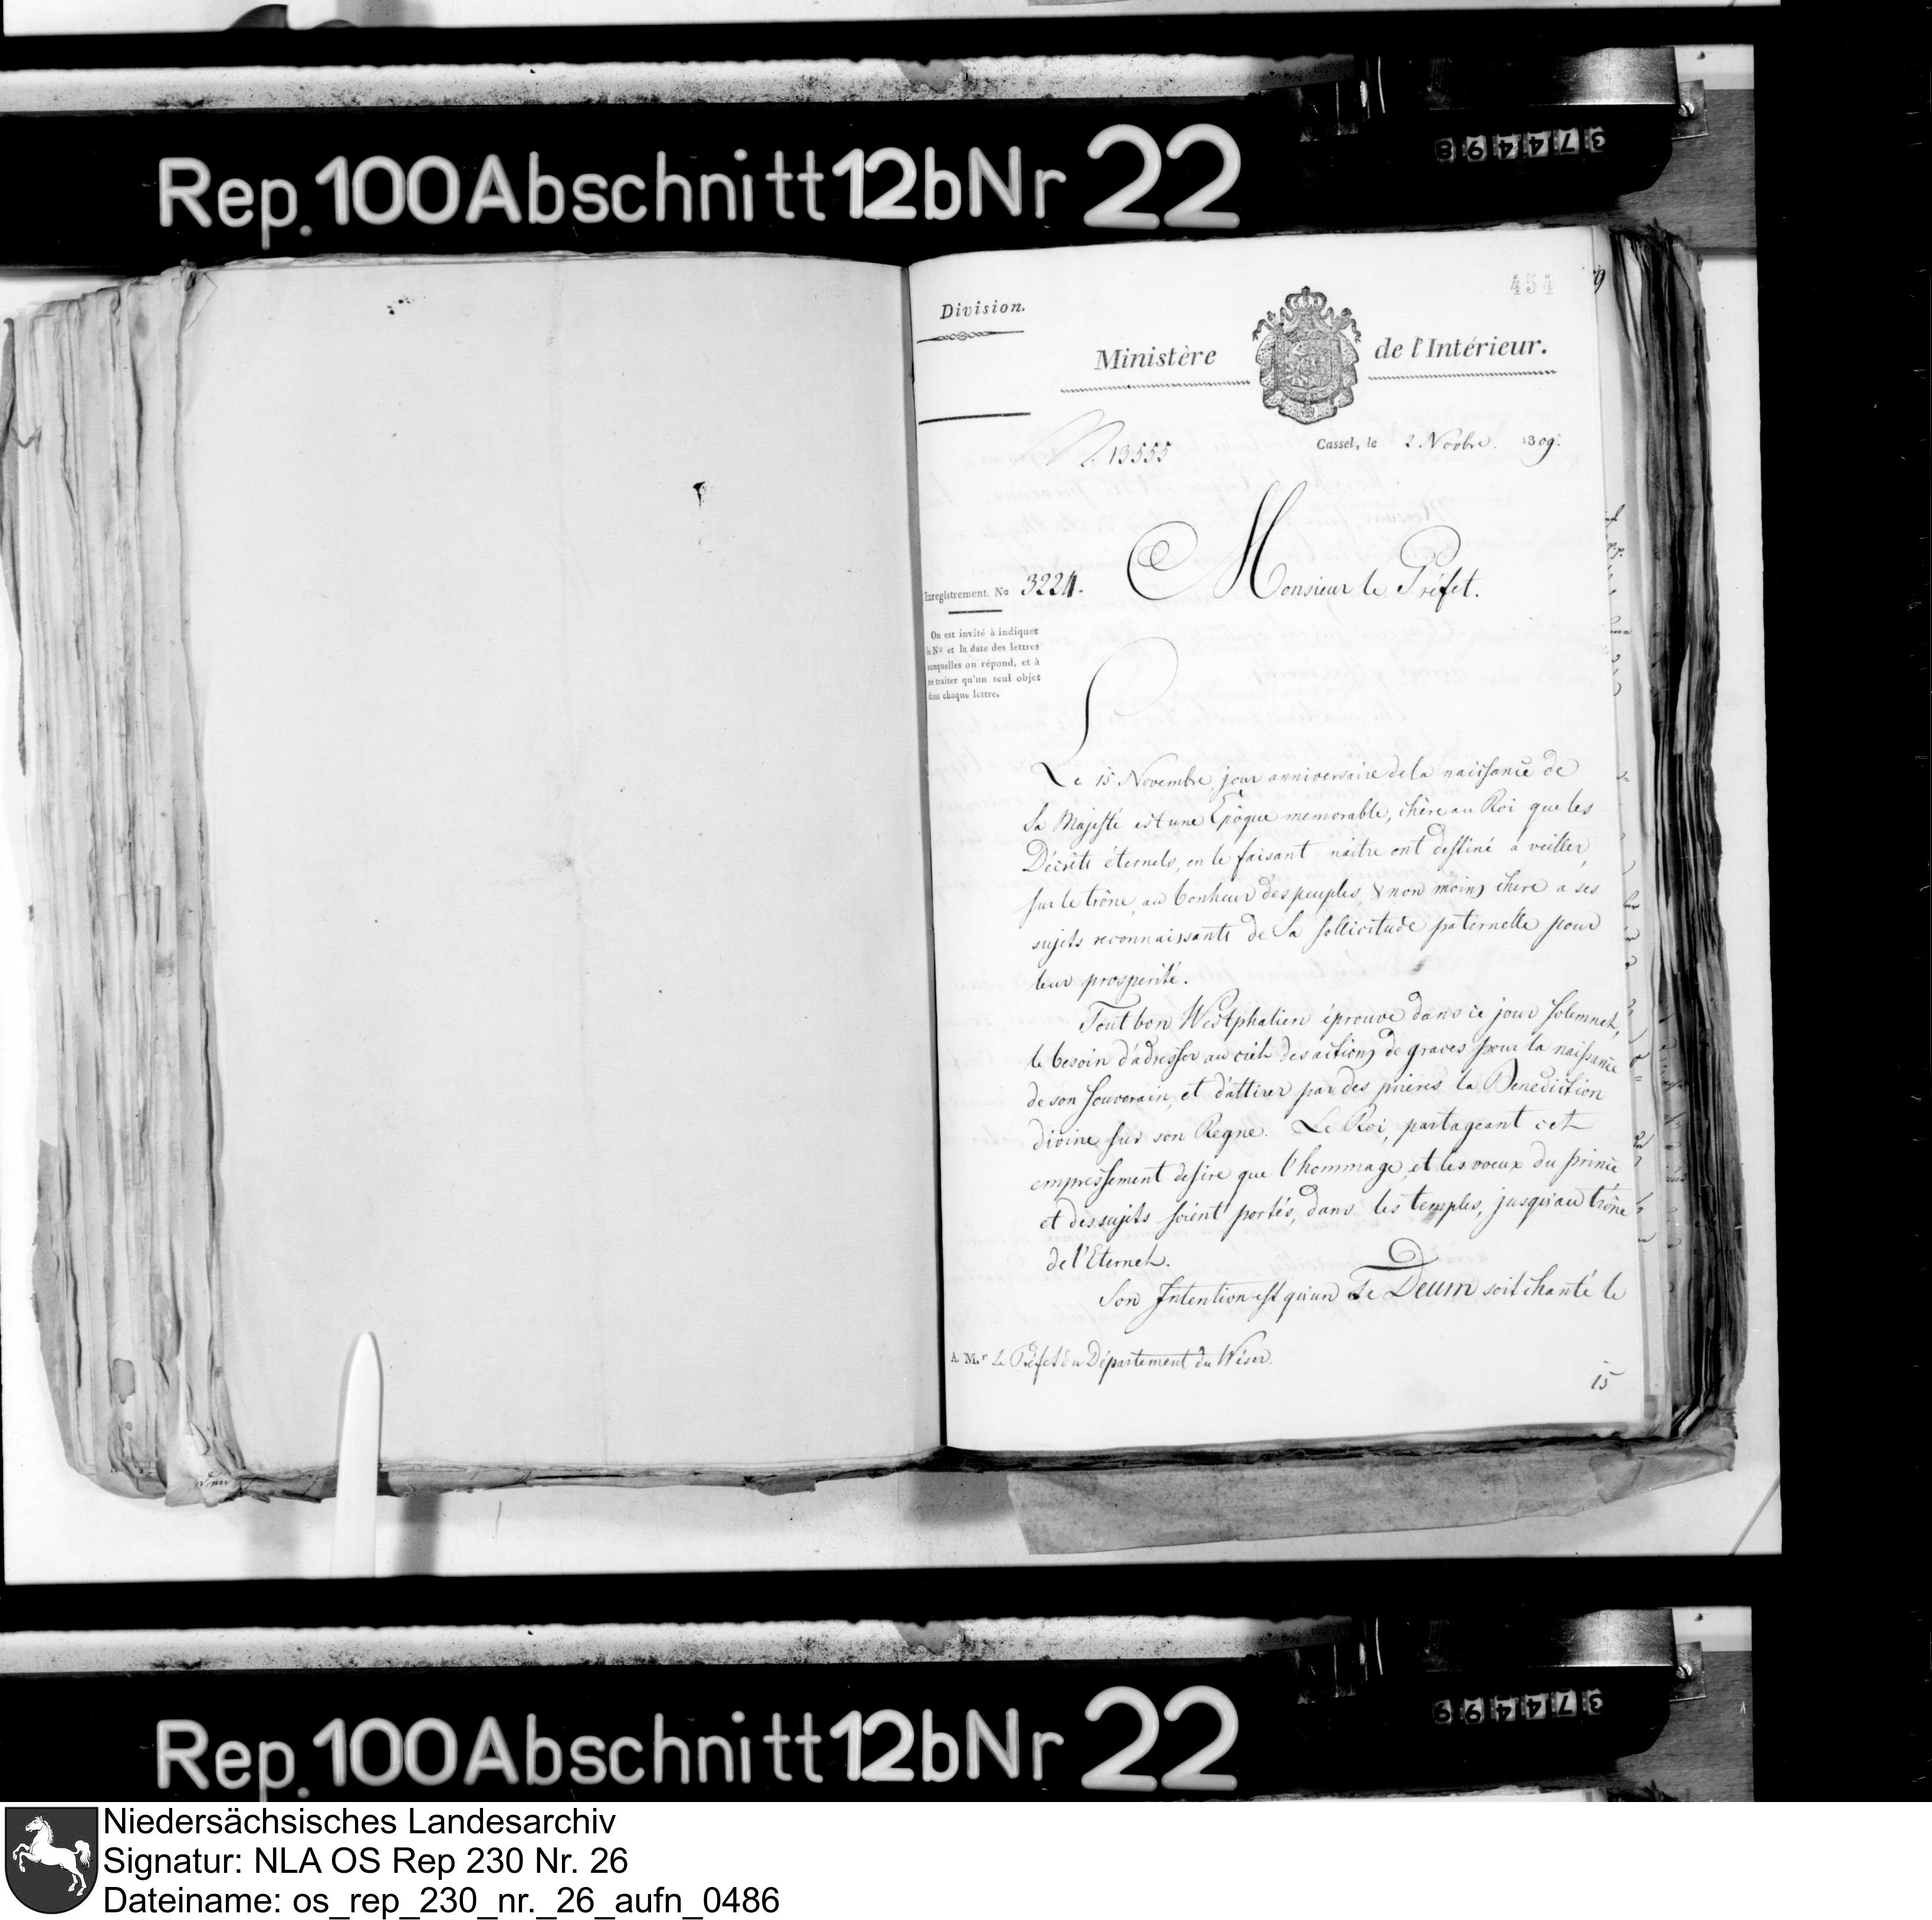 Rep. 100 Abschnitt 12b Nr 22
374498
454
Division.
Ministère de l'Intérieur.
N. 13555
Cassel, le 2 Novbre. 1809.
Enregistrement. No 3224.
Monsieur le Préfet.
On est invité à indiquer
le No et la date des lettres
auxquelles on répond, et à
ne traiter qu'un seul objet
dans chaque lettre.
Le 15 Novembre, jour anniversaire de la naissance de
Sa Majesté est une Epôque memorable, chère au Roi que les
Décrêts éternels, en le faisant naitre ont destiné a veiller,
sur le trône, au bonheur des peuples, & non moins chere a ses
sujets reconnaissants de Sa sollicitude paternelle pour
leur prosperité.
Tout bon Westphalien éprouve dans ce jour solemnel,
le besoin d'adresser au ciel des actions de graces pour la naissance
de son souverain, et d'attirer par des prieres la Benediction
divine sur son Regne. Le Roi, partageant cet
empressement desire que l'hommage et les voeux du prince
et des sujets soient portés, dans les temples, jusqu'au trône
de l'Eternel.
Son Intention est qu'un Te Deum soit chanté le
A. M.r Le Préfet du Département du Wéser.
15
Rep. 100 Abschnitt 12b Nr 22
374499
Niedersächsisches Landesarchiv
Signatur: NLA OS Rep 230 Nr. 26
Dateiname: os_rep_230_nr._26_aufn_0486